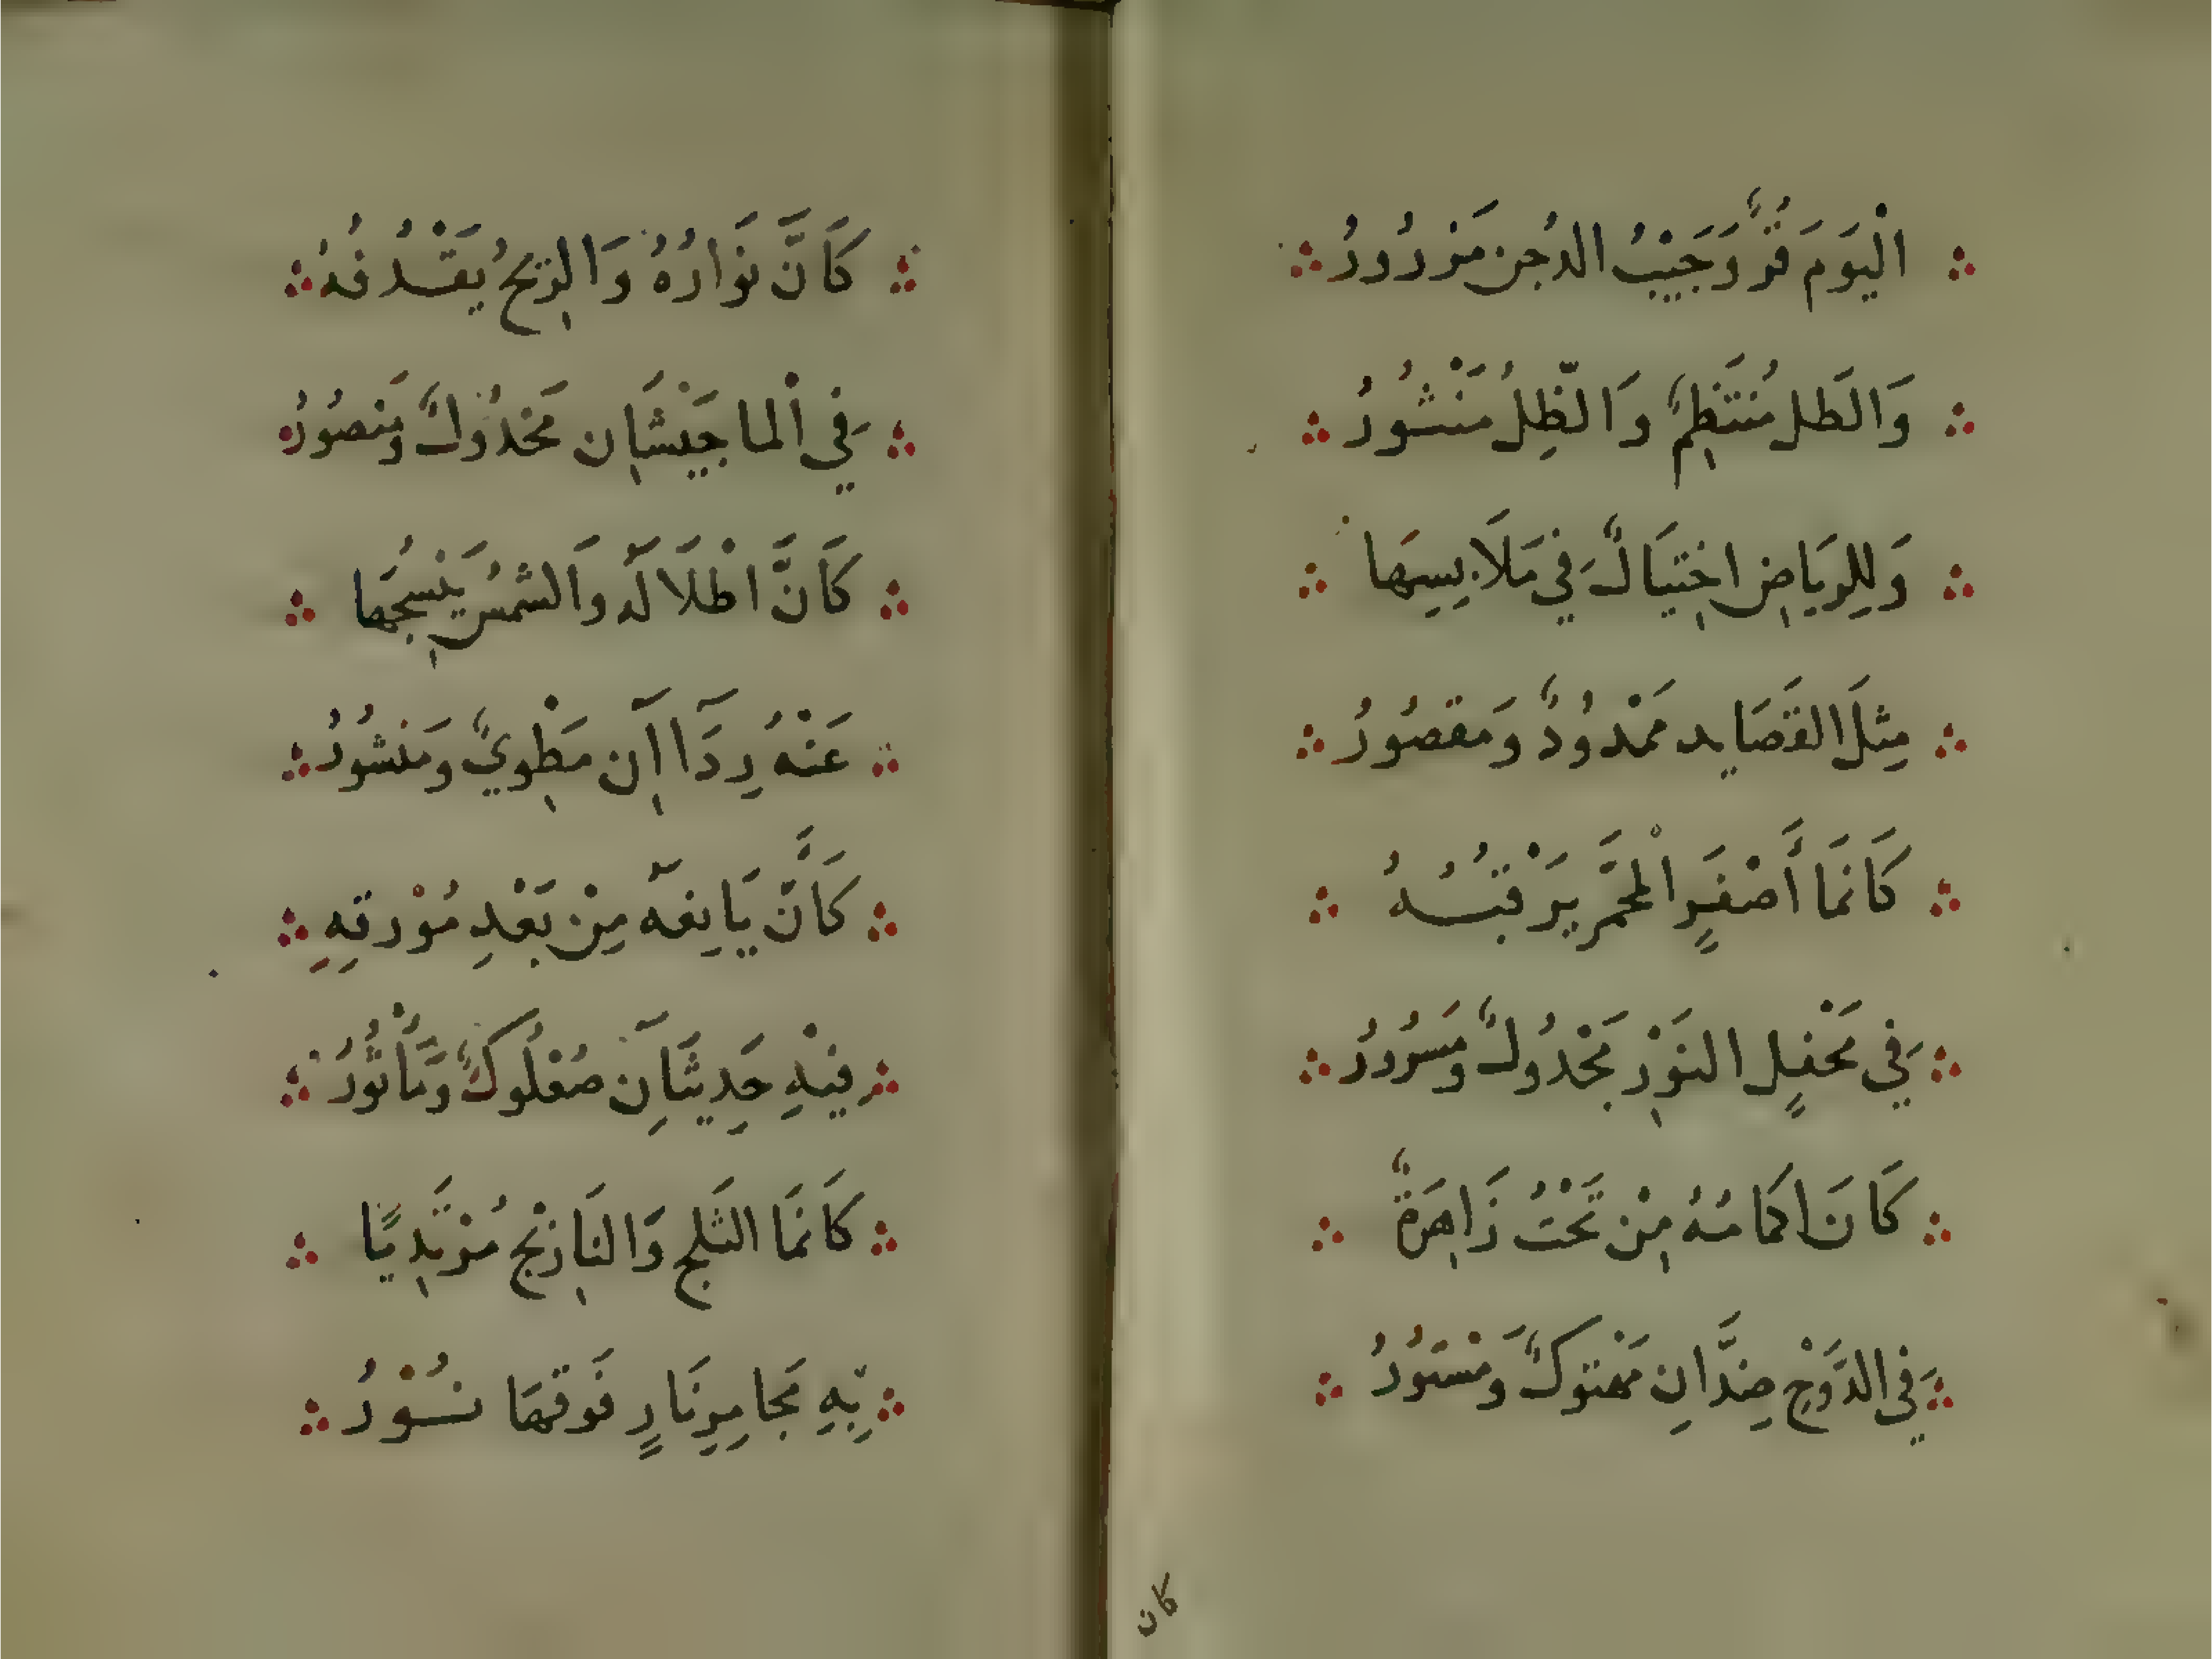 الْيَوَمَ قُرٌّ وَجَيْبُ الدُجن مَزْرُورُ
وَالطَل مُنتَظِمٌ وَالظِّلُ مَنْشُورُ
وَلِلرِيَاضِ اخِتيَالٌ فِي مَلَابِسِهَا
مِثلَ القَصَايد مَمْدُودٌ وَمَقصُورُ
كَانمَا أَصْفَرٍ المحْمَّر يَرْقبُهُ
فِي مَحْفلٍ النَوْرِ مَجْدُولٌ وَمَسرُورُ
كَانَ اكمامهُ مِنْ تَحْتُ زَاهِرَةٌ
فِي الدَوْحِ ضِدَّانِ مَهْتوكٌ وَمَسْتورُ
كان
كَاَنَّ نَوارُهُ وَالرِيحُ يَقْدُفُهُ
فِي اْلما جَيْشَانِ مَخذُولٌ وَمَنصُورُ
كَاَنَّ اظْلَالَهُ وَالشمسُ يَنْسِجُهَا
عَنْهُ رِدَآاآنِ مَطْوِيٌ وَمَنشُورُ
كَاَنَّ يَانِعهُ مِنْ بَعْدِ مُوْرقِهِ
فِيْهِ حَدِيثَانِ صُعْلُوكٌ وَمَأْثُورُ
كَانَمَا الثَلج وَالنَارِنْج مُرْتَدِيًا
بِهِ مَجامِرِنَارٍ فَوقهَا نُوْرُ